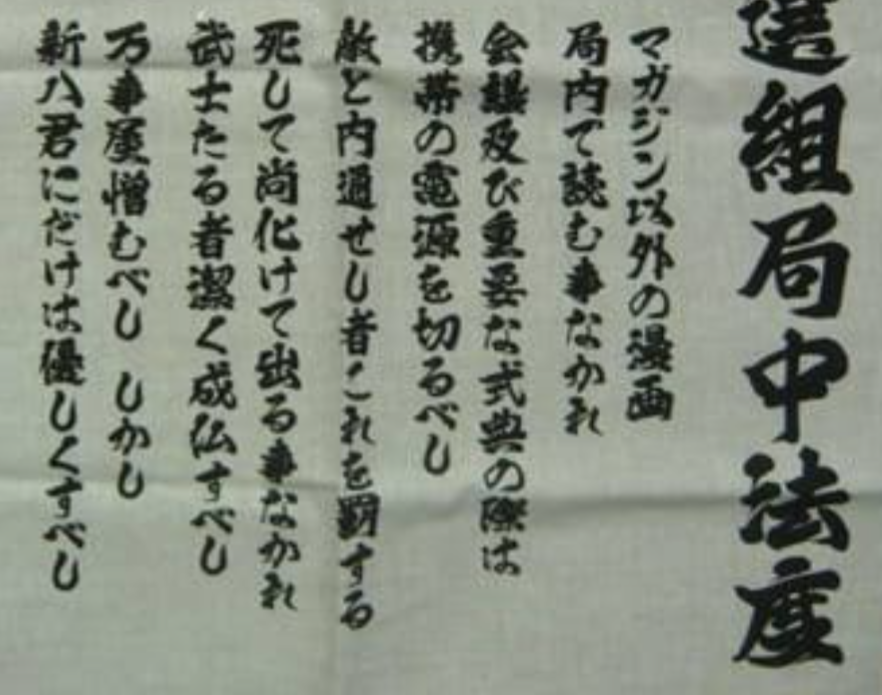 選組局中法度
マガジン以外の漫画
局内で読む事なかれ
会議及び重要な式典の際は
携帯の電源を切るべし
敵と内通せし者これを罰する
死して尚化けて出る事なかれ
武士たる者潔く成仏すべし
万事屋憎むべし しかし
新八君にだけは優しくすべし